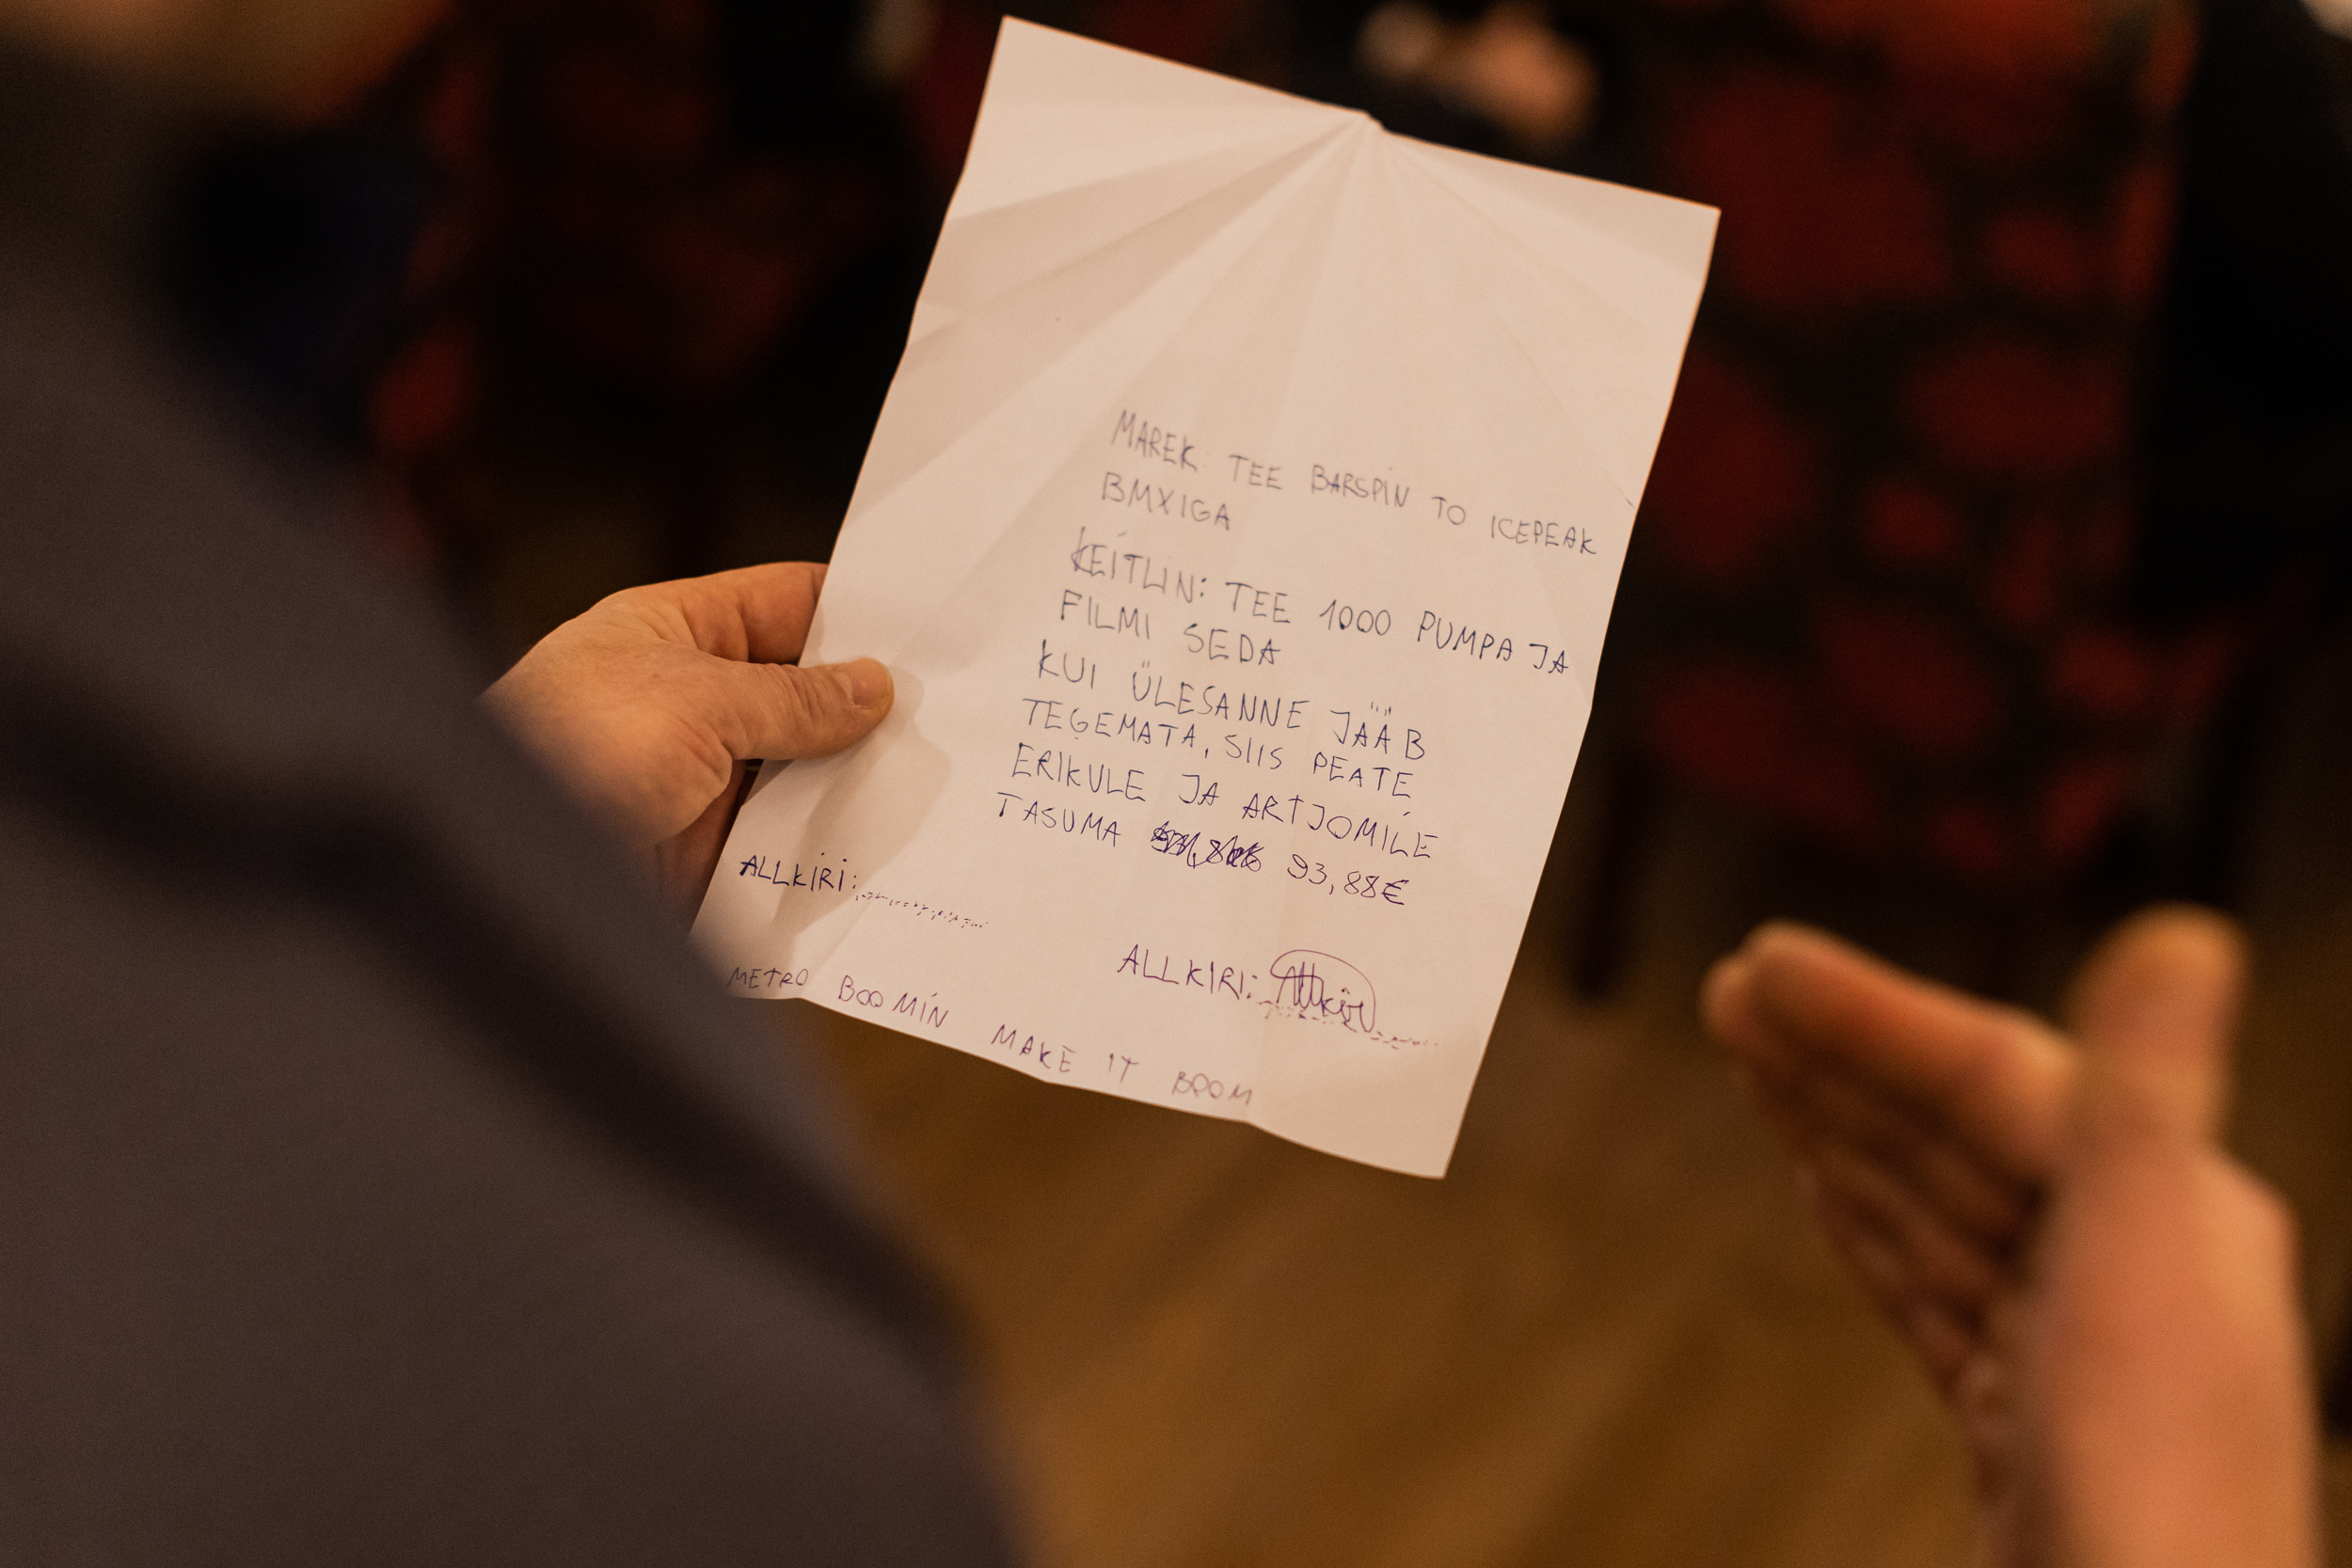 MAREK: TEE BARSPIN TO ICEPEAK
BMXIGA
KEITLIN: TEE 1000 PUMPA JA
FILMI SEDA
KUI ÜLESANNE JÄÄB
TEGEMATA, SIIS PEATE
ERIKULE JA ARTJOMILE
TASUMA 93,88€
ALLKIRI:
ALLKIRI: Allkiri
METRO BOOMIN MAKE IT BOOM